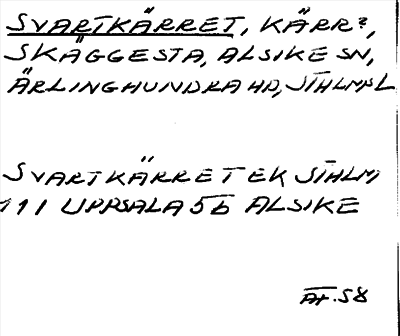 SVARTKÄRRET, KÄRR?,
SKÄGGESTA, ALSIKE SN,
ÄRLINGHUNDRA HD, STHLMS L
SVARTKÄRRET EK STHLM
111 UPPSALA 5b ALSIKE
AH. 58